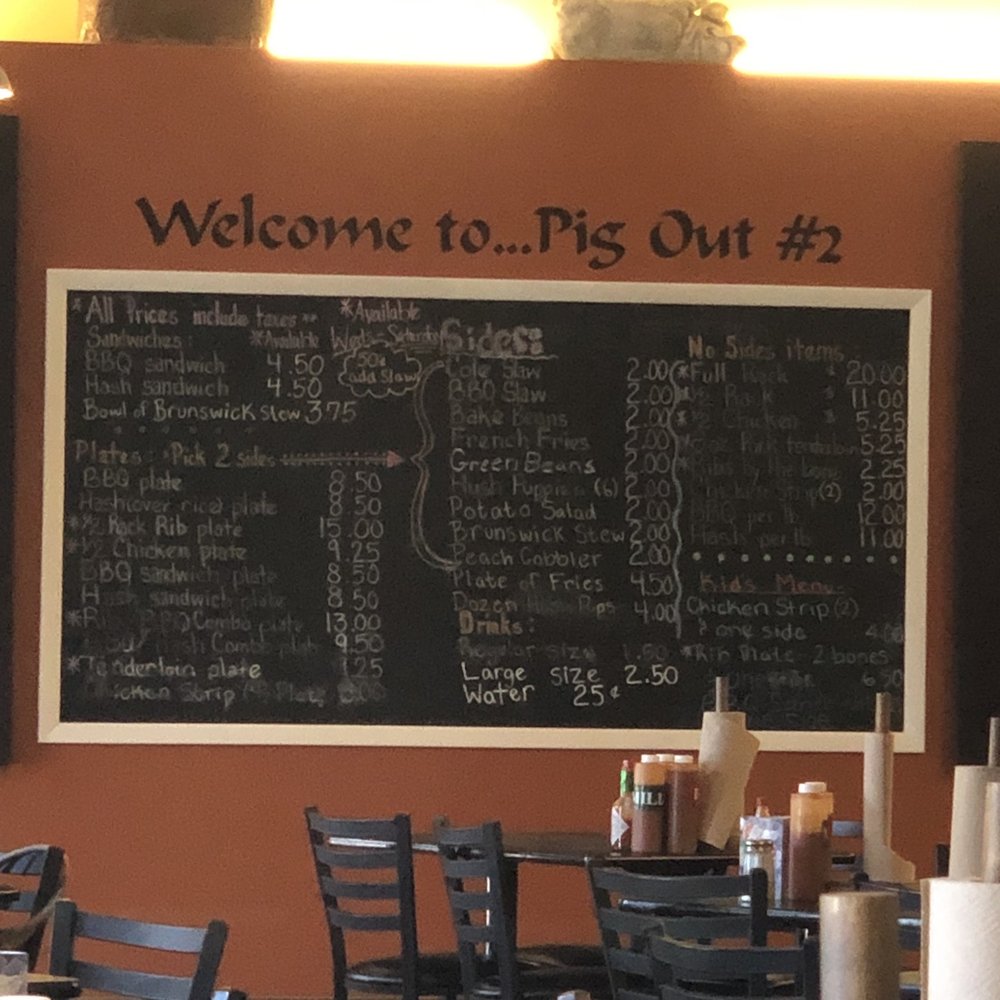 Welcome to...Pig Out #2
*All Prices include taxes
*Available
Sandwiches: *Available Weds - Saturday
BBQ sandwich 4.50
Hash sandwich 4.50
50¢ add Slaw
Bowl of Brunswick Stew 3.75
Plates: Pick 2 sides
BBQ plate 8.50
Hash over rice plate 8.50
*½ Rack Rib plate 15.00
*½ Chicken plate 9.25
BBQ sandwich plate 8.50
Hash sandwich plate 8.50
*Rib BBQ Combo plate 13.00
Hash Combo plate 9.50
*Tenderloin plate
Chicken Strip Plate
Sides:
Cole Slaw 2.00
BBQ Slaw 2.00
Bake Beans 2.00
French Fries 2.00
Green Beans 2.00
Hush Puppies (6) 2.00
Potato Salad 2.00
Brunswick Stew 2.00
Peach Cobbler 2.00
Plate of Fries 4.50
Dozen Pups 4.00
Drinks:
Regular size 1.50
Large size 2.50
Water 25¢
No Sides items:
*Full Rack $ 20.00
*½ Rack $ 11.00
*½ Chicken $ 5.25
5.25
Ribs by the bone 2.25
Chicken Strip (2) 2.00
BBQ per lb 12.00
Hash per lb 11.00
Kids Menu:
Chicken Strip (2)
? one side 4.00
*Rib Plate - 2 bones
6.50